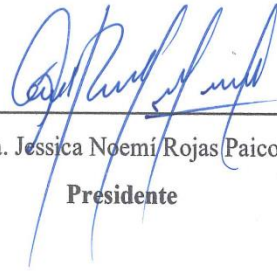 a. Jessica Noemí Rojas Paico
Presidente